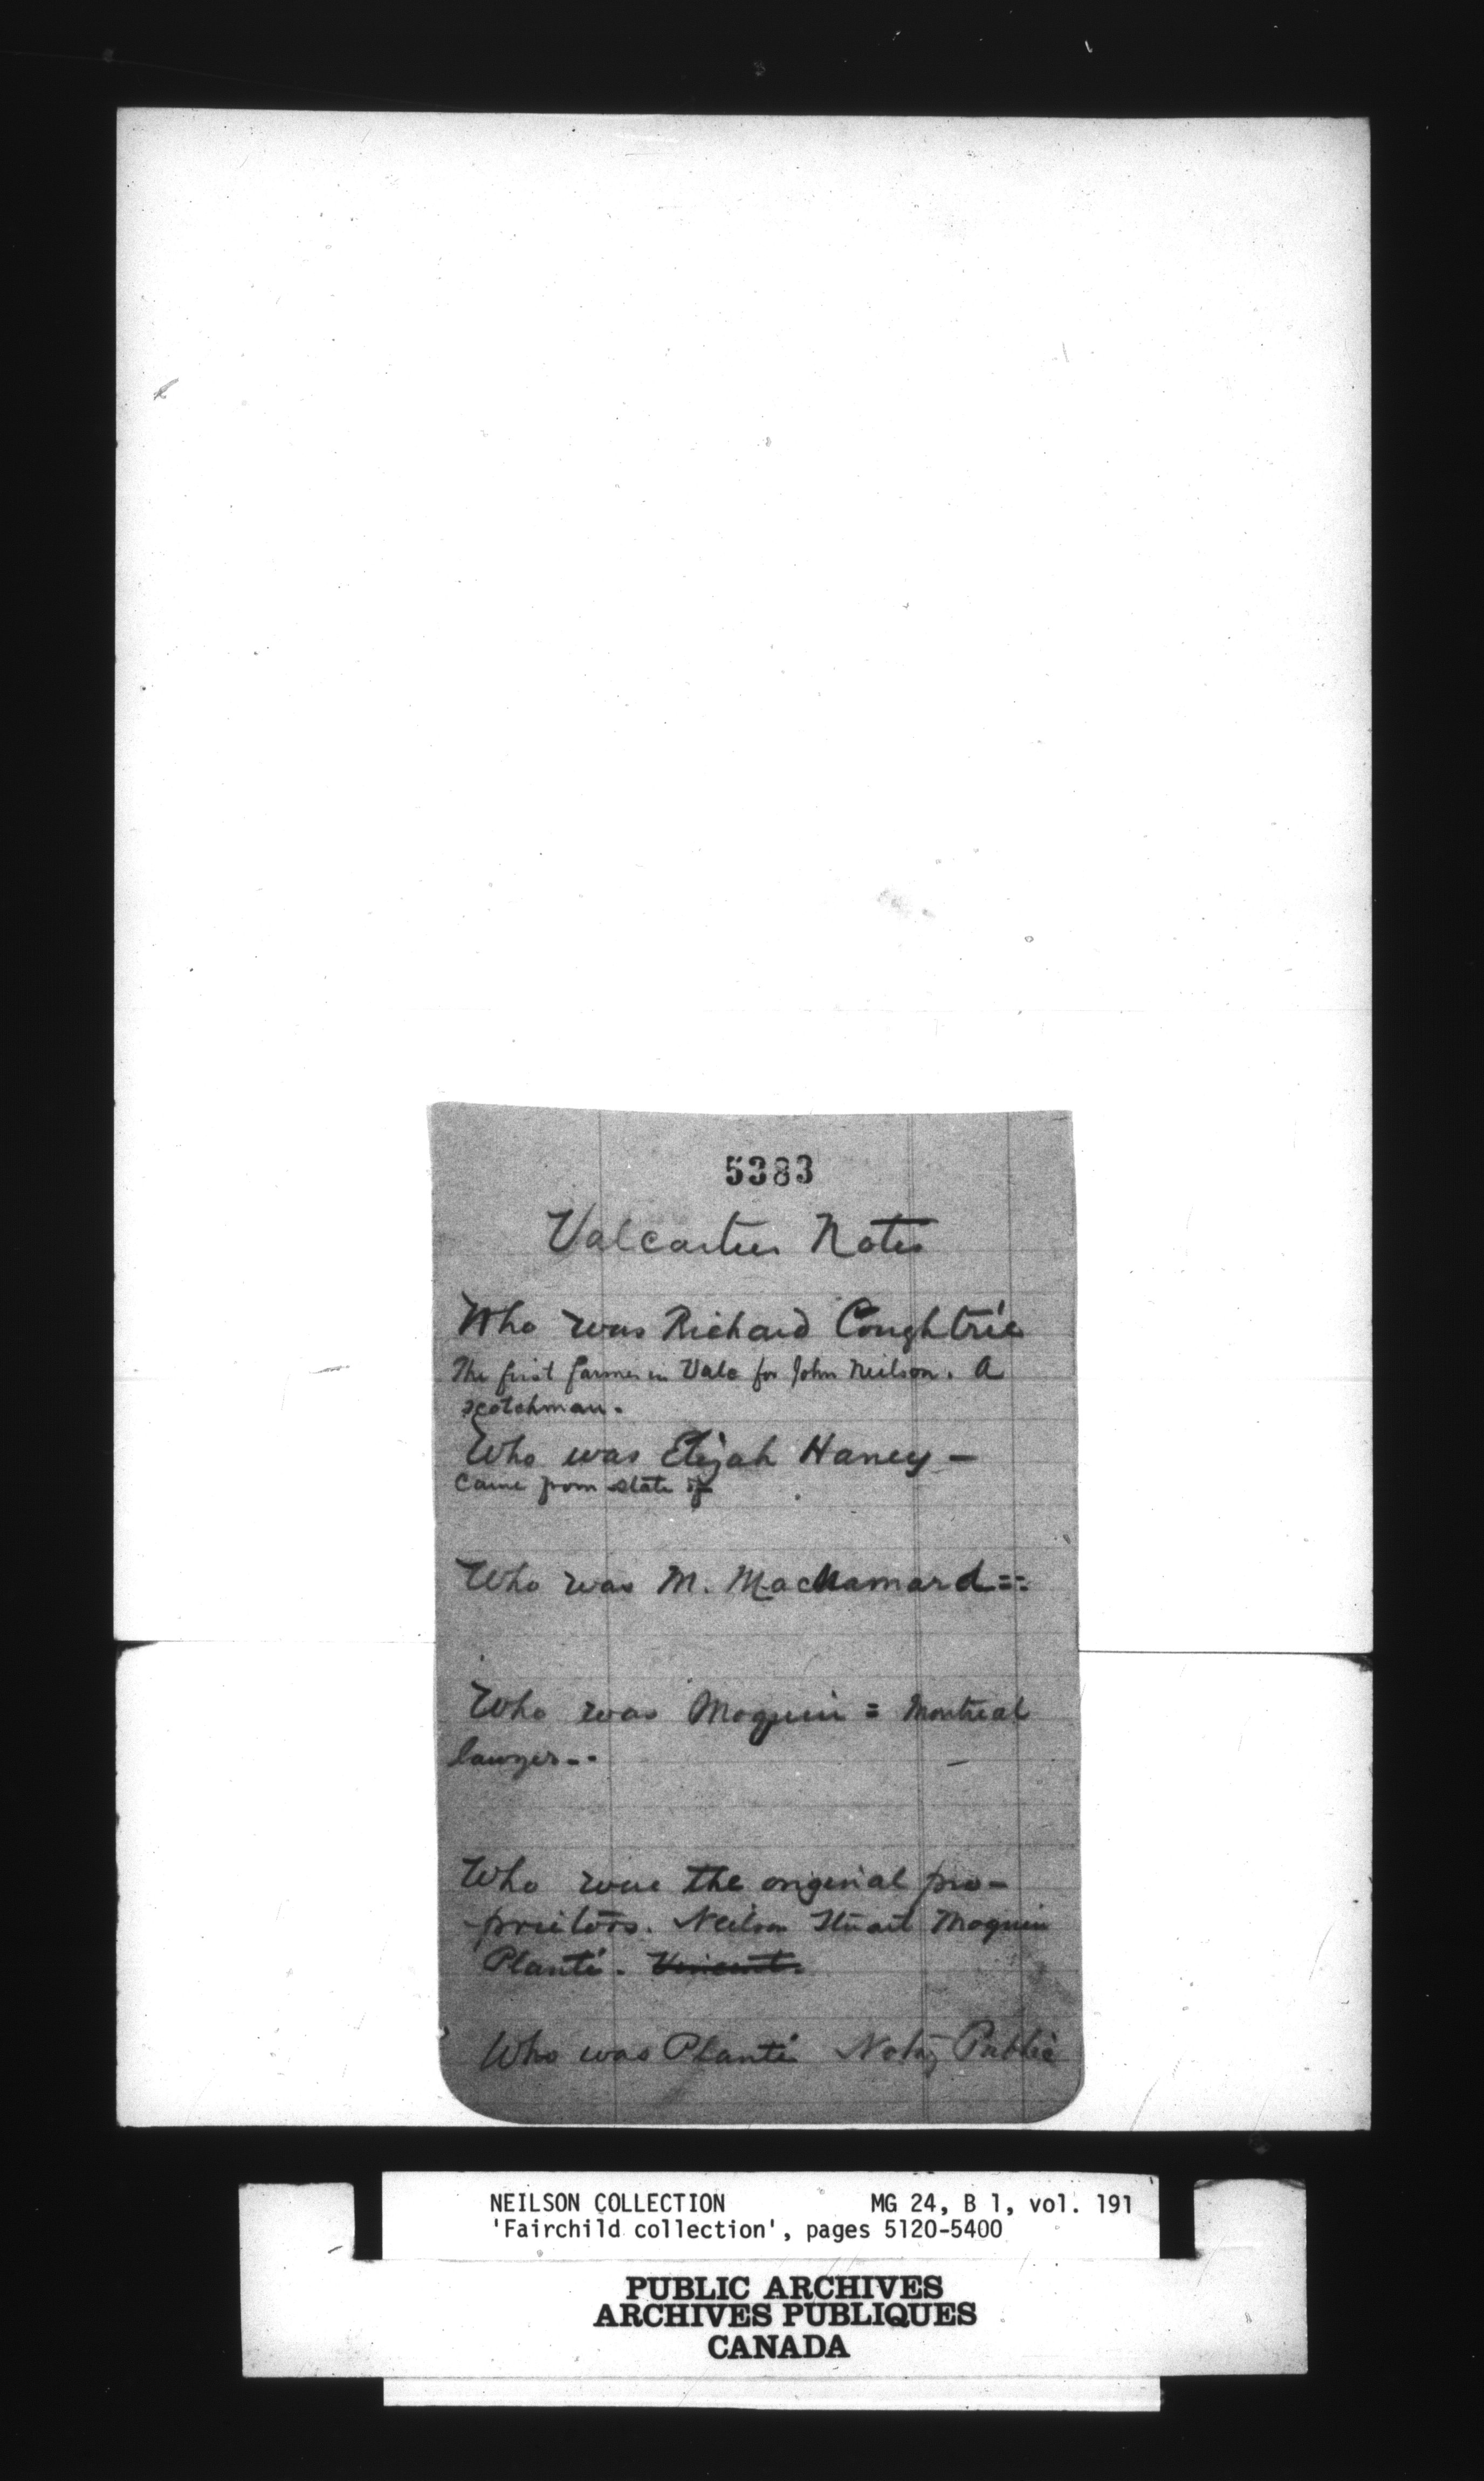 5383
Valcartier Notes
Who was Richard Coughtrie
The first farmer in Valc for John Neilson. A
scotchman.
Who was Elijah Haney —
came from state of
Who was M. MacNamard=:
Who was Moquin = Montreal
lawyer--
Who were the original pro-
prietors. Neilson Stuart Moquin
Planté. Vincent.
Who was Planté Notry Public
NEILSON COLLECTION MG 24, B 1, vol. 191
'Fairchild collection', pages 5120-5400
PUBLIC ARCHIVES
ARCHIVES PUBLIQUES
CANADA